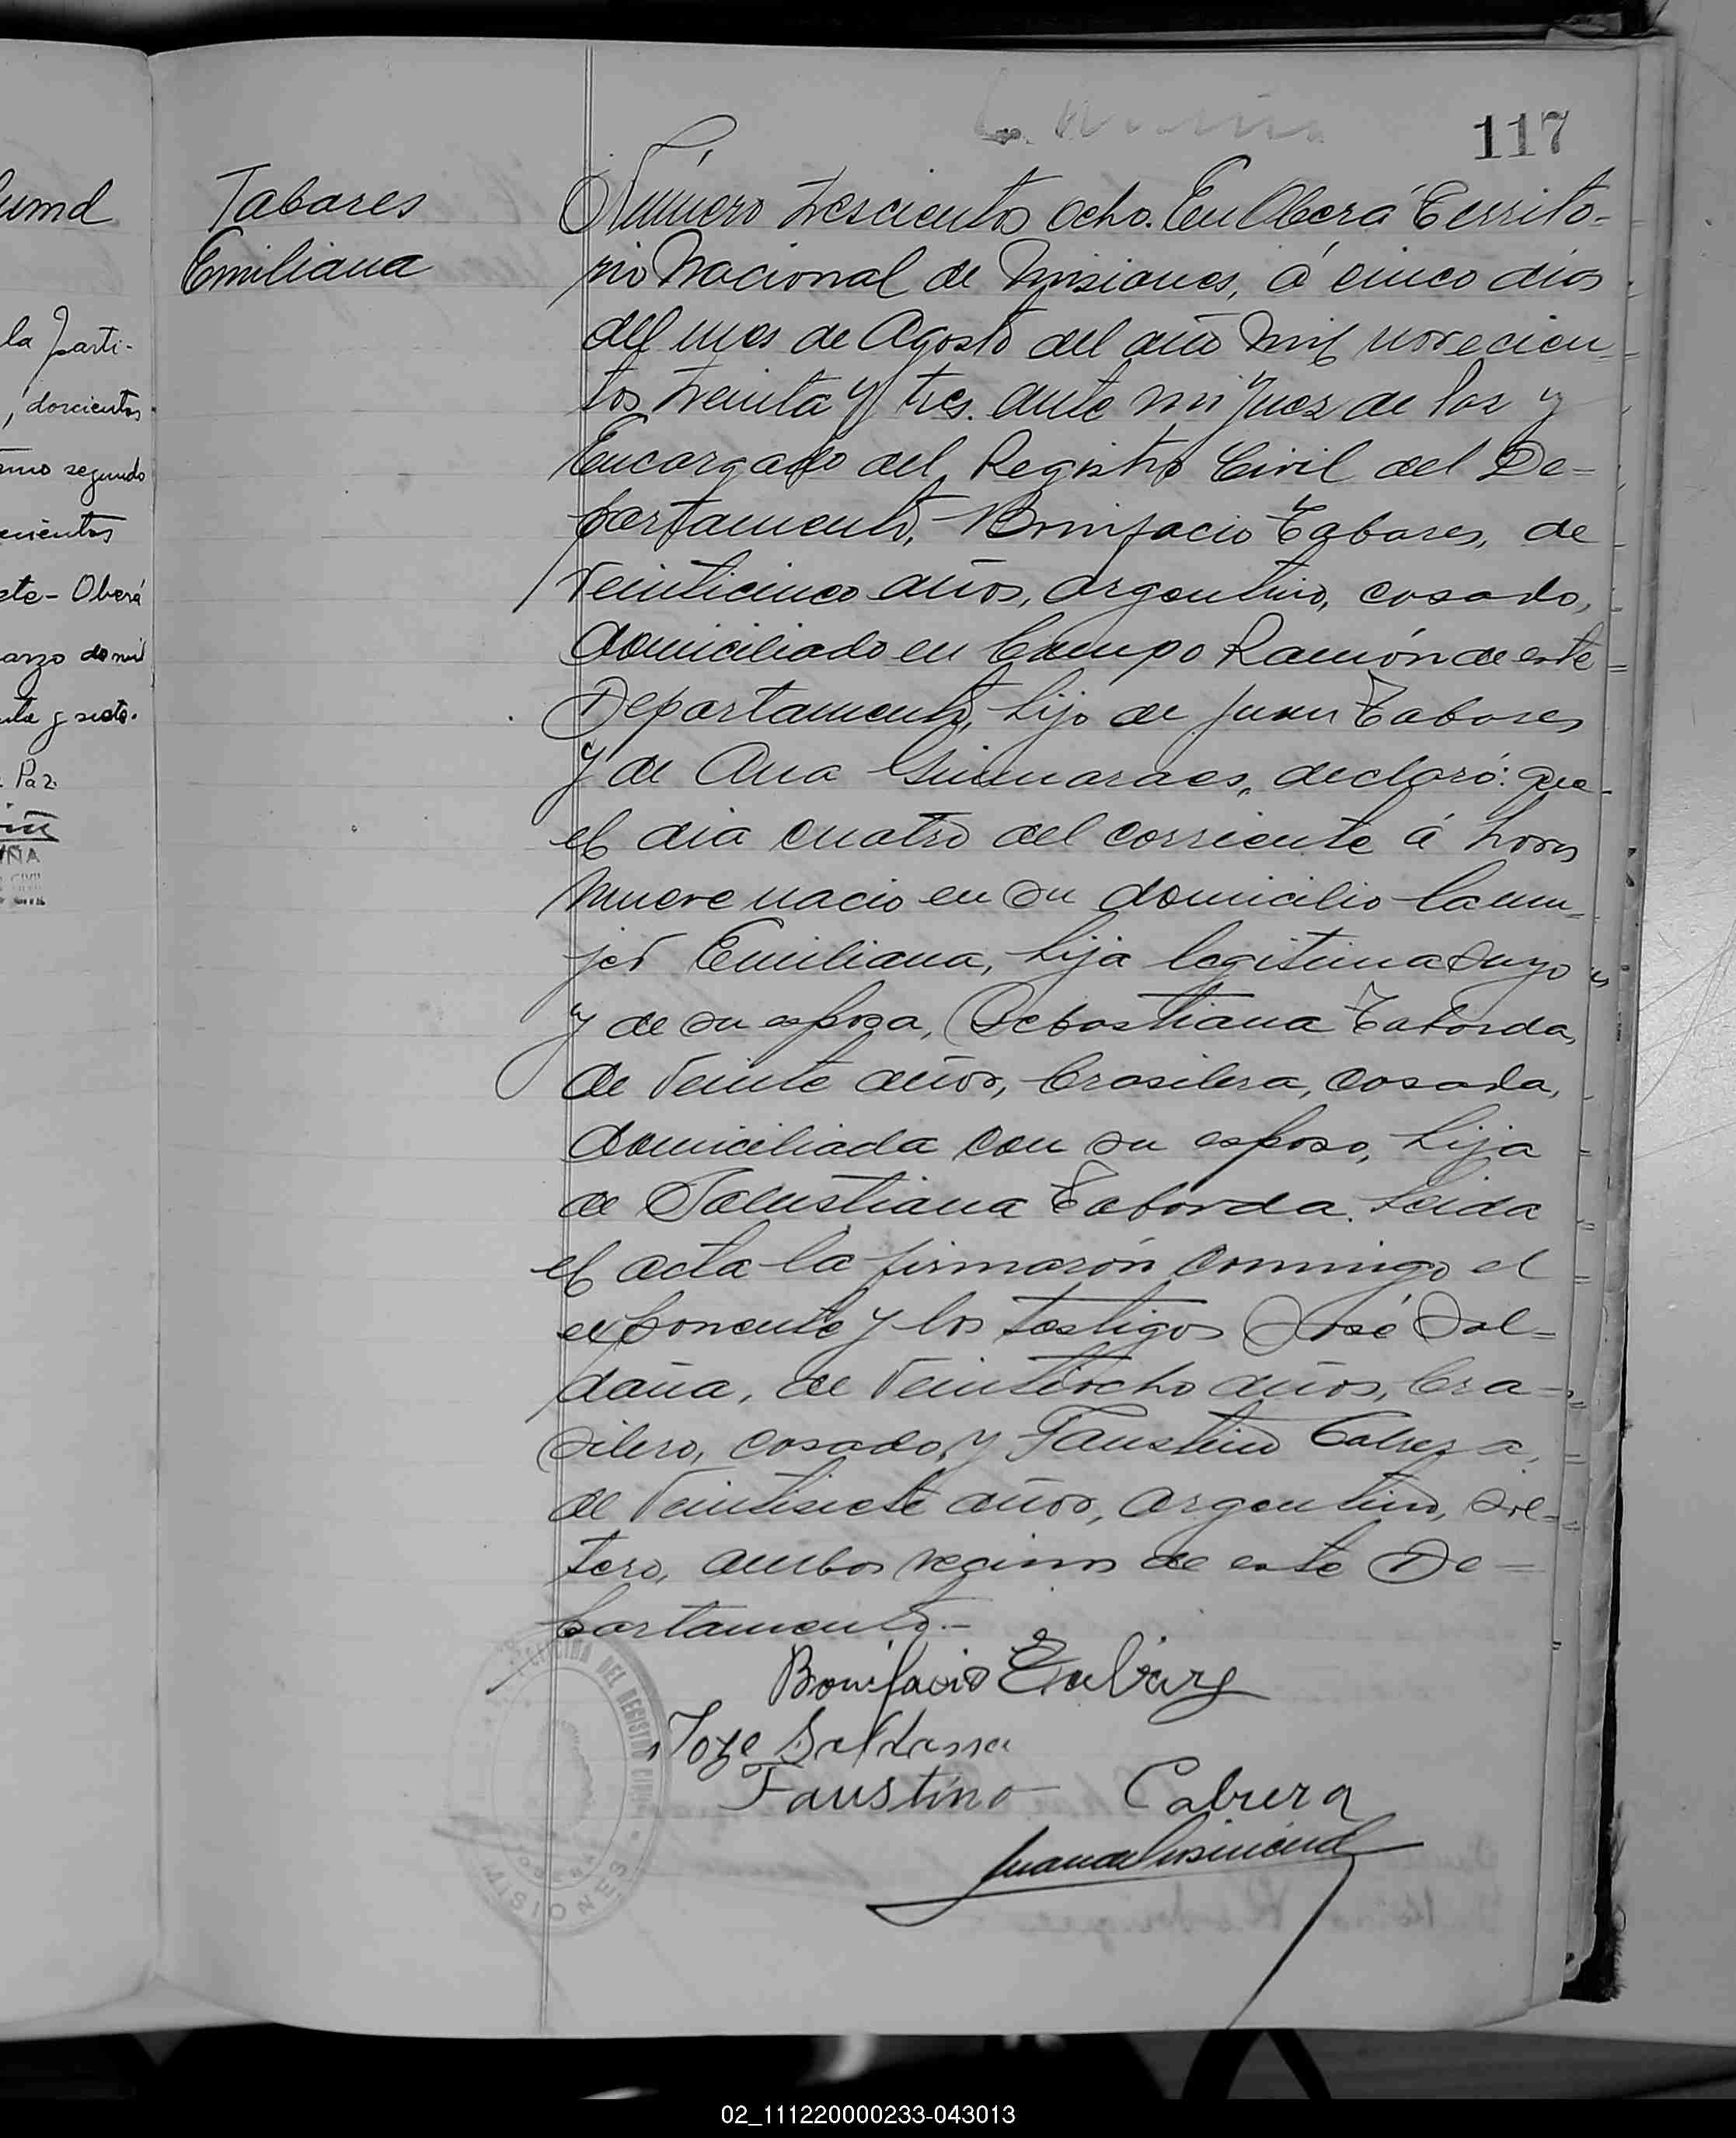 117
Tabares
Emiliana
Número trescientos ocho. En Oberá Territo-
rio Nacional de Misiones, á cinco dias
del mes de Agosto del año mil novecien-
tos treinta y tres. ante mi Juez de Paz y
Encargado del Registro Civil del De-
partamento, Bonifacio Tabares, de
veinticinco años, argentino, casado,
domiciliado en Campo Ramón de este
Departamento, hijo de Juan Tabares
y de Ana Guimaraes, declaró: que
el dia cuatro del corriente á horas
nueve nacio en su domicilio la mu-
jer Emiliana, hija legitima suya
y de su esposa, Sebastiana Taborda,
de veinte años, brasilera, casada,
domiciliada con su esposo, hija
de Salustiana Taborda. Leida
el acta la firmarón conmigo el
exponente y los testigos José Sal-
daña, de veintiocho años, bra-
silero, casado, y Faustino Cabrera,
de veintisiete años, argentino, sol-
tero, ambos vecinos de este De-
partamento.-
Bonifacio
Joze Saldanna
Faustino Cabrera
OFICINA DEL REGISTRO CIVIL
OBERA
MISIONES
umd
la parti-
, doscientos
segundo
Oberá
arzo de mil
y siete.
Paz
02_111220000233-043013